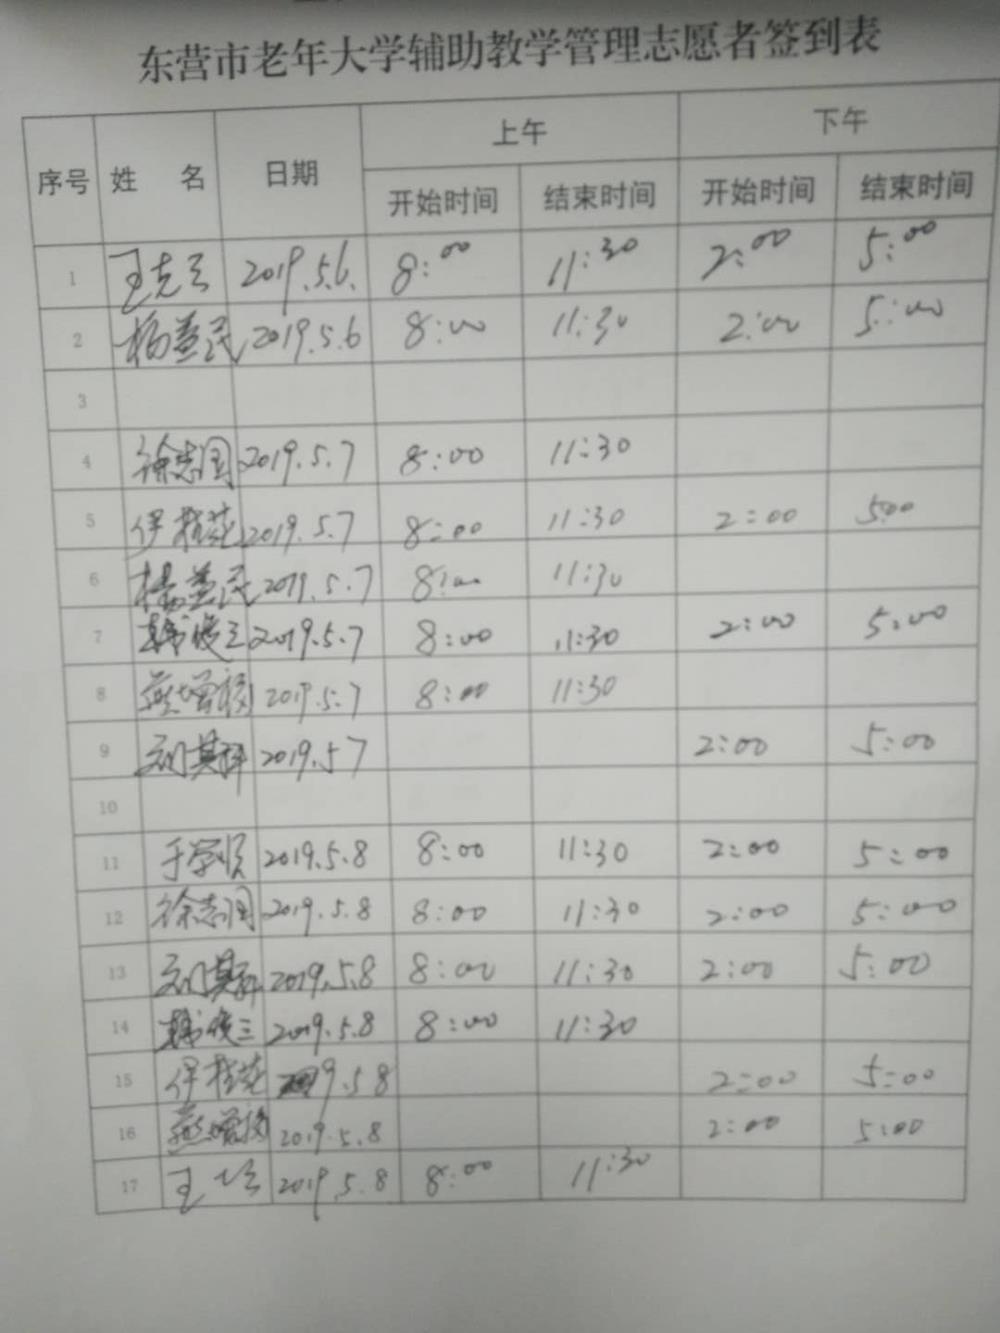 东营市老年大学辅助教学管理志愿者签到表
序号 姓 名 日期 上午 下午
开始时间 结束时间 开始时间 结束时间
1 2019.5.6. 8:00 11:30 2:00 5:00
2 杨益民 2019.5.6 8:00 11:30 2:00 5:00
3
4 徐志国 2019.5.7 8:00 11:30
5 伊桂花 2019.5.7 8:00 11:30 2:00 5:00
6 杨益民 2019.5.7 8:00 11:30
7 韩俊三 2019.5.7 8:00 11:30 2:00 5:00
8 2019.5.7 8:00 11:30
9 刘其科 2019.5.7 2:00 5:00
10
11 于学顺 2019.5.8 8:00 11:30 2:00 5:00
12 徐志国 2019.5.8 8:00 11:30 2:00 5:00
13 刘其科 2019.5.8 8:00 11:30 2:00 5:00
14 韩俊三 2019.5.8 8:00 11:30
15 伊桂花 9.5.8 2:00 5:00
16 2019.5.8 2:00 5:00
17 2019.5.8 8:00 11:30